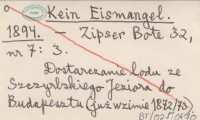 Kein Eismangel.
1894. – Zipser Bote 32,
nr 7: 3.
Dostarczanie lodu ze
Szczyrbskiego Jeziora do
Budapesztu (już w zimie 1872/73).